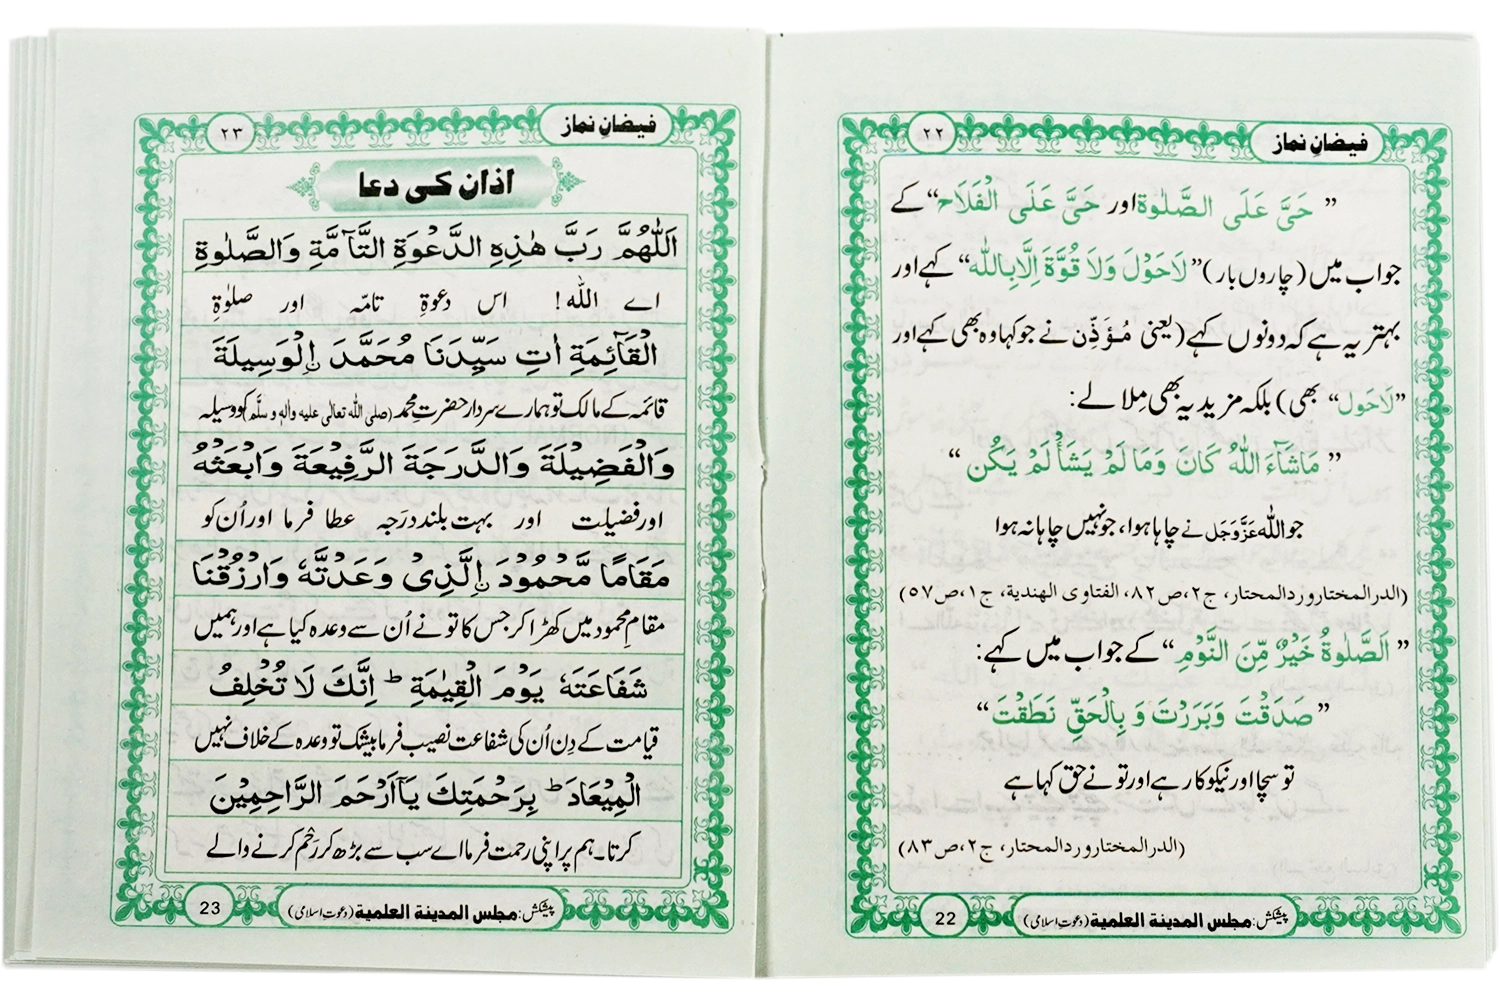 فیضانِ نماز
۲۲
” حَیَّ عَلَی الصَّلٰوة اور حَیَّ عَلَی الْفَلَاح“ کے
جواب میں (چاروں بار) ”لَاحَوْلَ وَلَا قُوَّةَ اِلَّا بِاللّٰه“ کہے اور
بہتر یہ ہے کہ دونوں کہے (یعنی مُؤَذِّن نے جو کہا وہ بھی کہے اور
”لَاحَول“ بھی) بلکہ مزید یہ بھی مِلا لے:
” مَاشَآءَ اللّٰهُ كَانَ وَمَا لَمْ يَشَأْ لَمْ يَكُن “
جو اللّٰہ عَزَّوَجَل نے چاہا ہوا، جو نہیں چاہا نہ ہوا
(الدر المختار و رد المحتار، ج۲،ص۸۲، الفتاوی الهندیة، ج۱،ص۵۷)
” اَلصَّلٰوةُ خَيْرٌ مِّنَ النَّوْمِ “ کے جواب میں کہے:
” صَدَقْتَ وَبَرَرْتَ وَ بِالْحَقِّ نَطَقْتَ “
تو سچا اور نیکوکار ہے اور تو نے حق کہا ہے
(الدر المختار و رد المحتار، ج۲،ص۸۳)
پیشکش: مجلس المدینة العلمیة (دعوتِ اسلامی)
22
فیضانِ نماز
۲۳
اذان کی دعا
اَللّٰهُمَّ رَبَّ هٰذِهِ الدَّعْوَةِ التَّآمَّةِ وَالصَّلٰوةِ
اے اللّٰہ! اس دعوةِ تامّہ اور صلوٰةِ
الْقَآئِمَةِ اٰتِ سَيِّدَنَا مُحَمَّدَ نِ الْوَسِيلَةَ
قائمہ کے مالک تو ہمارے سردار حضرتِ محمد (صلی اللّٰہ تعالٰی علیہ واٰلہٖ وسلَّم) کو وسیلہ
وَالْفَضِيْلَةَ وَالدَّرَجَةَ الرَّفِيْعَةَ وَابْعَثْهُ
اور فضیلت اور بہت بلند درَجہ عطا فرما اور اُن کو
مَقَامًا مَّحْمُوْدَ نِ الَّذِىْ وَعَدْتَّهٗ وَارْزُقْنَا
مقامِ محمود میں کھڑا کر جس کا تو نے اُن سے وعدہ کیا ہے اور ہمیں
شَفَاعَتَهٗ يَوْمَ الْقِيٰمَةِ ؕ اِنَّكَ لَا تُخْلِفُ
قیامت کے دِن اُن کی شفاعت نصیب فرما بیشک تو وعدہ کے خلاف نہیں
الْمِيْعَادَ ؕ بِرَحْمَتِكَ يَآ اَرْحَمَ الرَّاحِمِيْنَ
کرتا۔ ہم پر اپنی رحمت فرما اے سب سے بڑھ کر رَحْم کرنے والے
پیشکش: مجلس المدینة العلمیة (دعوتِ اسلامی)
23